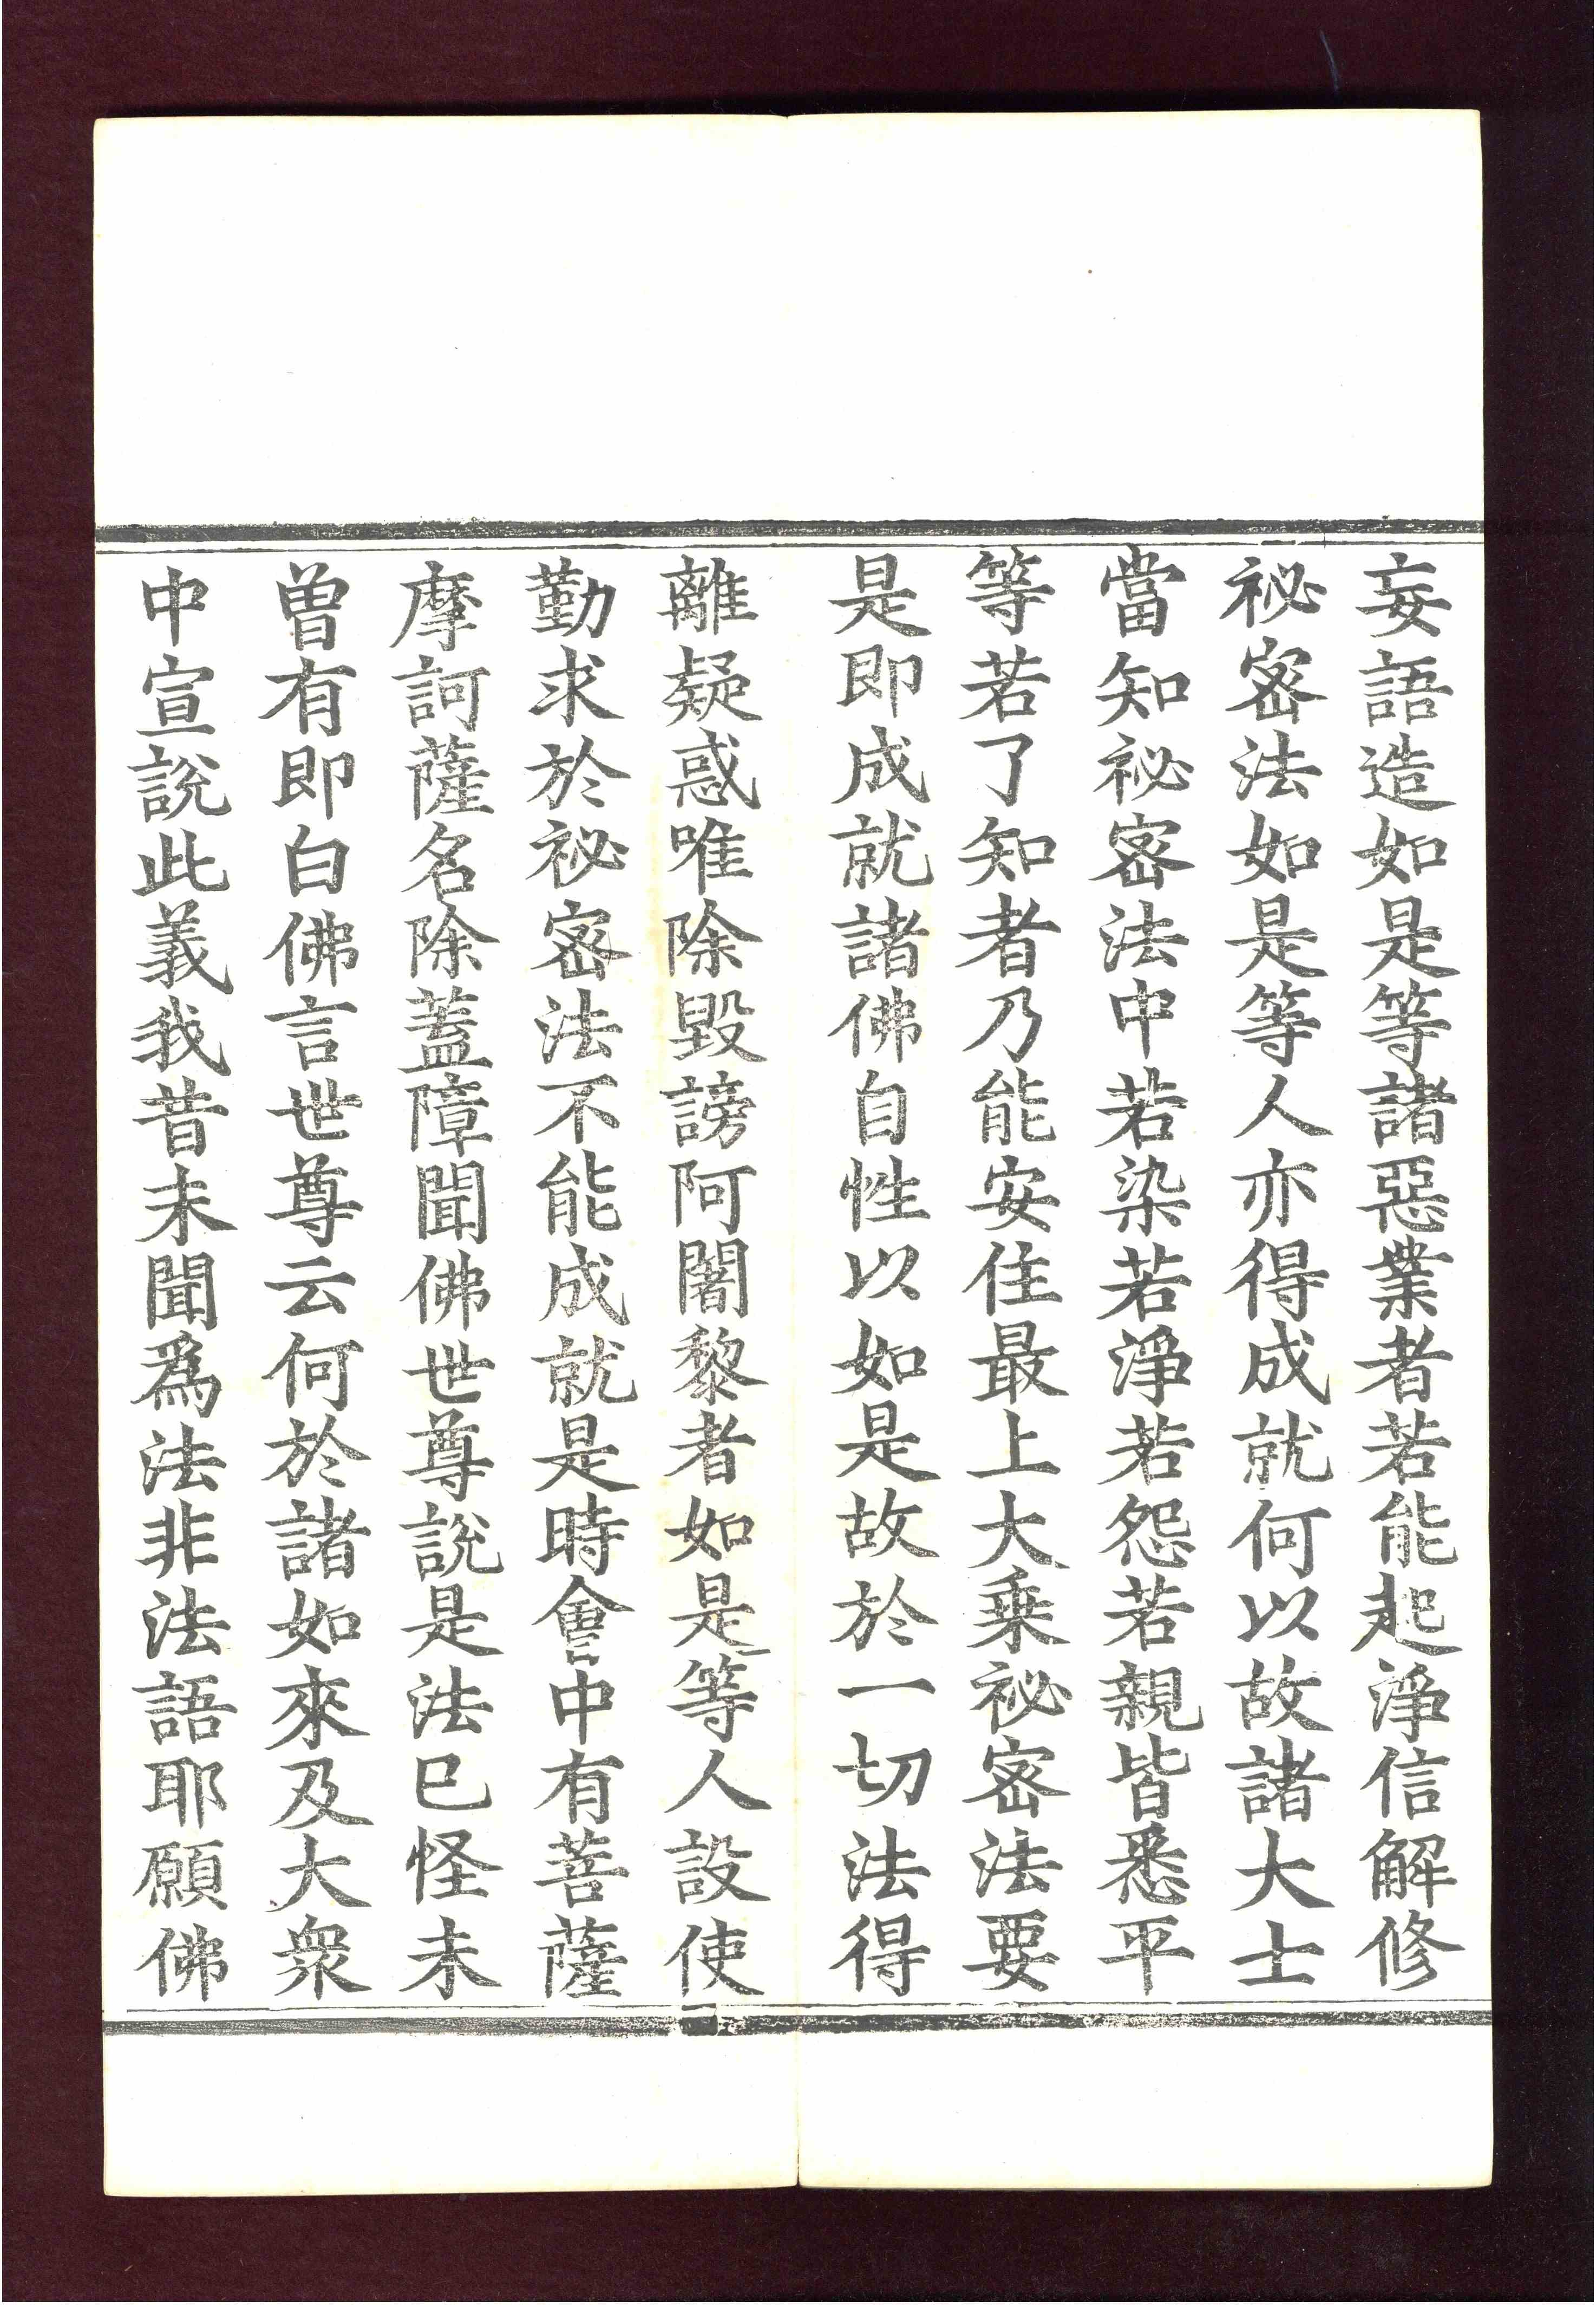 妄語造如是等諸惡業者若能起淨信解修
祕密法如是等人亦得成就何以故諸大士
當知祕密法中若染若淨若怨若親皆悉平
等若了知者乃能安住最上大乗祕密法要
是即成就諸佛自性以如是故於一切法得
離疑惑唯除毀謗阿闍黎者如是等人設使
勤求於祕密法不能成就是時會中有菩薩
摩訶薩名除蓋障聞佛世尊說是法已怪未
曾有即白佛言世尊云何於諸如來及大衆
中宣說此義我昔未聞爲法非法語耶願佛